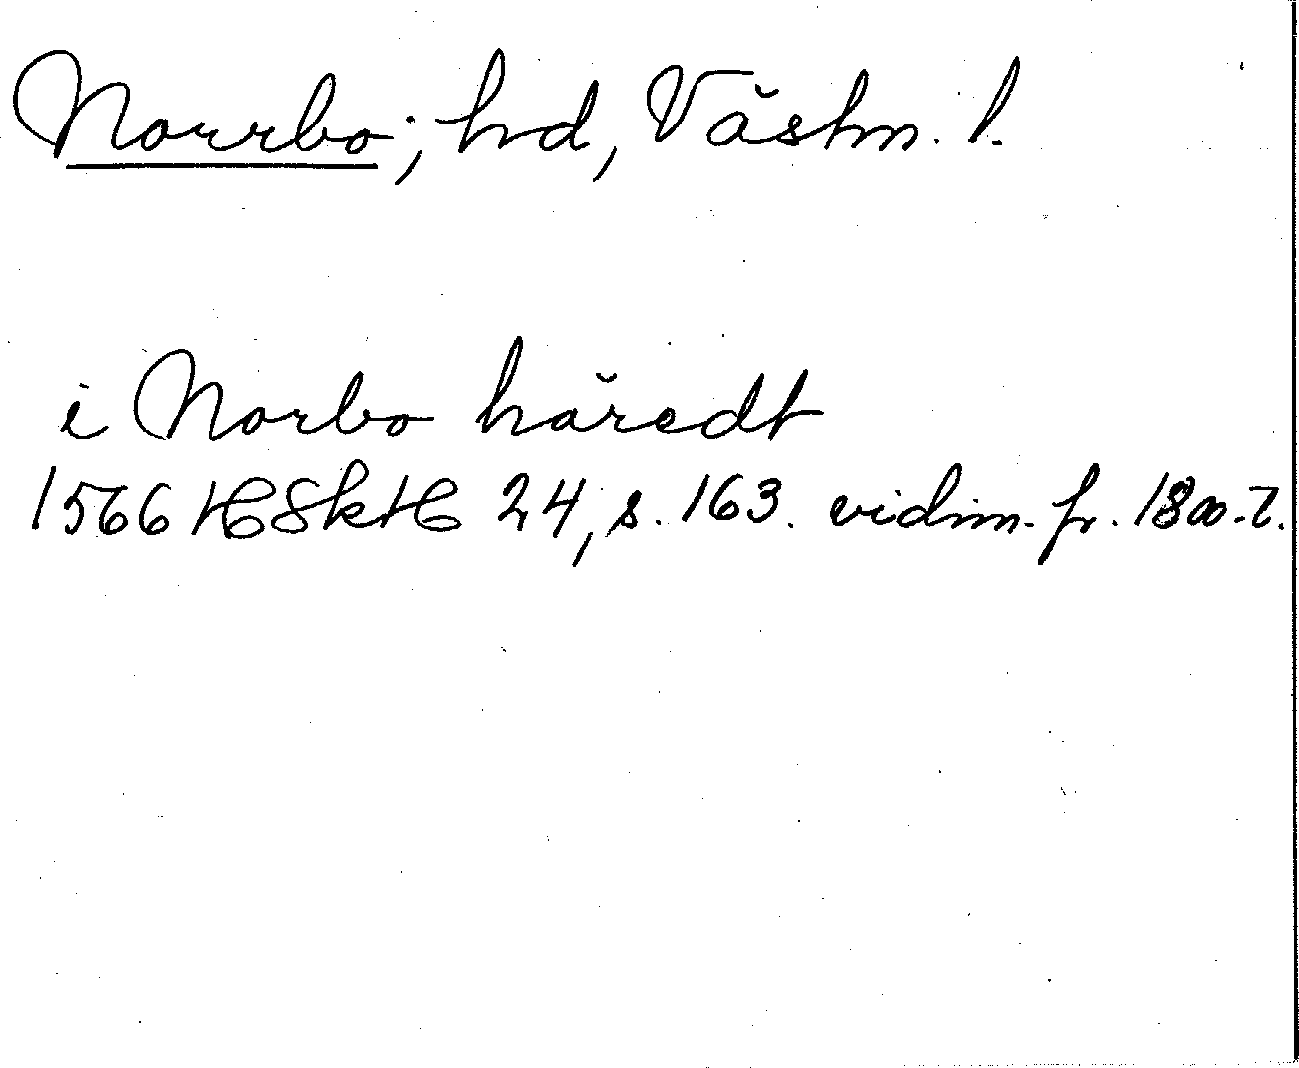 Norrbo; hd, Västm. l.
i Norbo häredt
1566 HSkH 24, s. 163. vidim. fr. 1800-t.